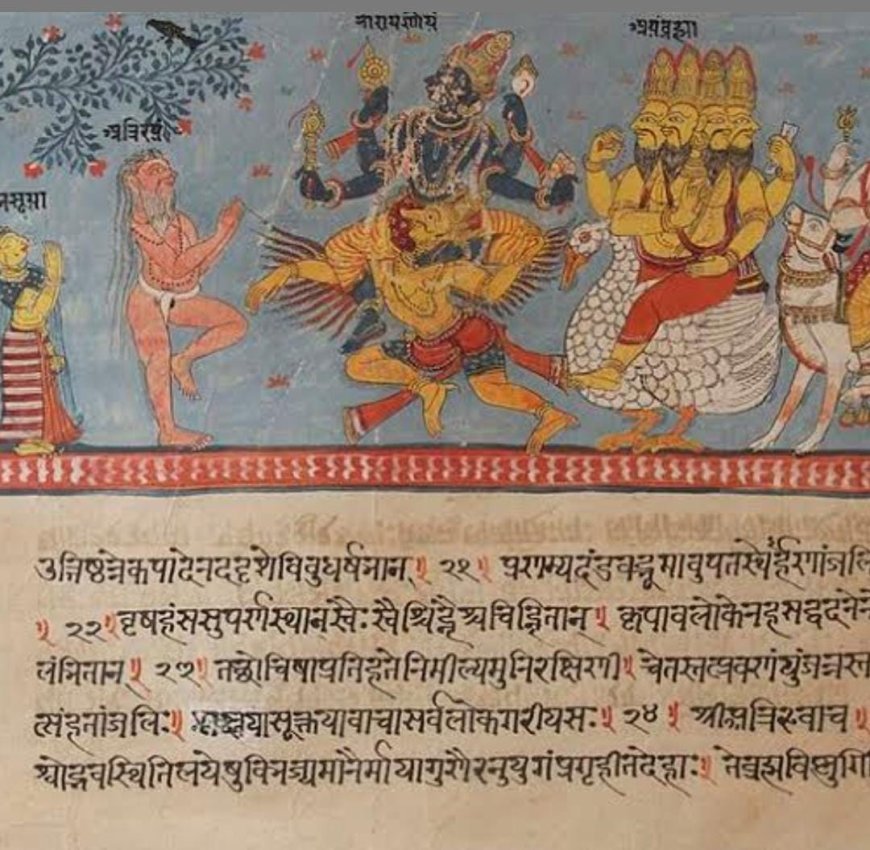 नारायणोयं
अयंब्रह्मा
अत्रिरयं
नसूया
उत्तिष्ठन्नेकपादेनददृशेविबुधर्षभान्॥ २१॥ प्रणम्यदंडवद्भूमावुपतस्थेर्हणांजलि
॥ २२॥ वृषहंससुपर्णस्थान्स्वैःस्वैश्चिह्नैश्चचिह्नितान्॥ कृपावलोकेनहसद्वदने
लंभितान्॥ २३॥ तच्छोचिषाप्रतिहतेनिमील्यमुनिरक्षिणी॥ चेतस्तत्प्रवणंयुंजन्नस्ता
त्संहतांजलिः॥ श्लक्ष्णयासूक्तयावाचासर्वलोकगरीयसः॥ २४॥ श्रीअत्रिरुवाच॥
श्वोद्भवस्थितिलयेषुविभज्यमानैर्मायागुणैरनुयुगंप्रगृहीतदेहाः॥ तेब्रह्मविष्णुगिरि